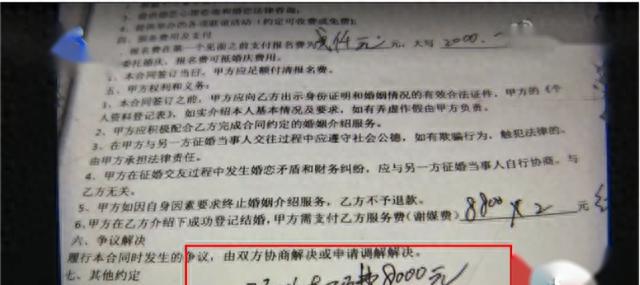 3、提供婚恋心理咨询和婚姻法律咨询;
4、提供举办的各项联谊活动(约定可收费或免费)
四、服务费用及支付
报名费在第一个见面之前支付报名费为 元,大写 2000.
委托婚庆,报名费可抵婚庆费用。
本合同签订当日,甲方应足额付清报名费。
五、甲方权利和义务:
1、本合同签订之前,甲方应向乙方出示身份证明和婚姻情况的有效合法证件,甲方的《个
人资料登记表》,如实介绍本人基本情况及要求,如有弄虚作假由甲方负责。
2、甲方应积极配合乙方完成合同约定的婚姻介绍服务。
3、在甲方与另一方征婚当事人交往过程中应遵守社会公德,如有欺骗行为,触犯法律的,
由甲方承担法律责任。
4、甲方在征婚交友过程中发生婚恋矛盾和财务纠纷,应与另一方征婚当事人自行协商,与
乙方无关。
5、甲方如因自身因素要求终止婚姻介绍服务,乙方不予退款。
6、甲方在乙方介绍下成功登记结婚,甲方需支付乙方服务费(谢媒费) 8800×2 元
六、争议解决
履行本合同时发生的争议,由双方协商解决或申请调解解决。
七、其他约定
8000元